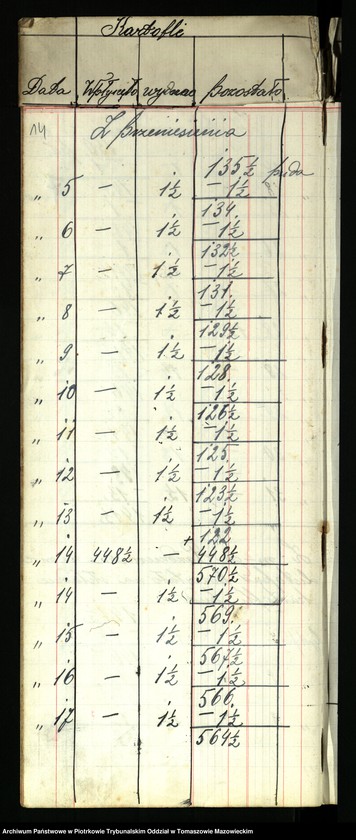 Kartofli
Data Wpłynęło wydano Pozostało
14 Z Przeniesienia
135½ puda
„ 5 — 1½ — 1½
134.
„ 6 — 1½ — 1½
132½
„ 7 — 1½ — 1½
131.
„ 8 — 1½ — 1½
129½
„ 9 — 1½ — 1½
128.
„ 10 — 1½ — 1½
126½
„ 11 — 1½ — 1½
125.
„ 12 — 1½ — 1½
123½
„ 13 — 1½ — 1½
+ 122
„ 14 448½ — 448½
570½
„ 14 — 1½ — 1½
569.
„ 15 — 1½ — 1½
567½
„ 16 — 1½ — 1½
566.
„ 17 — 1½ — 1½
564½
Archiwum Państwowe w Piotrkowie Trybunalskim Oddział w Tomaszowie Mazowieckim